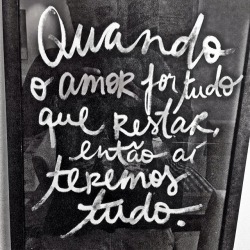 Quando
o amor for tudo
que restar,
então aí
teremos
tudo.